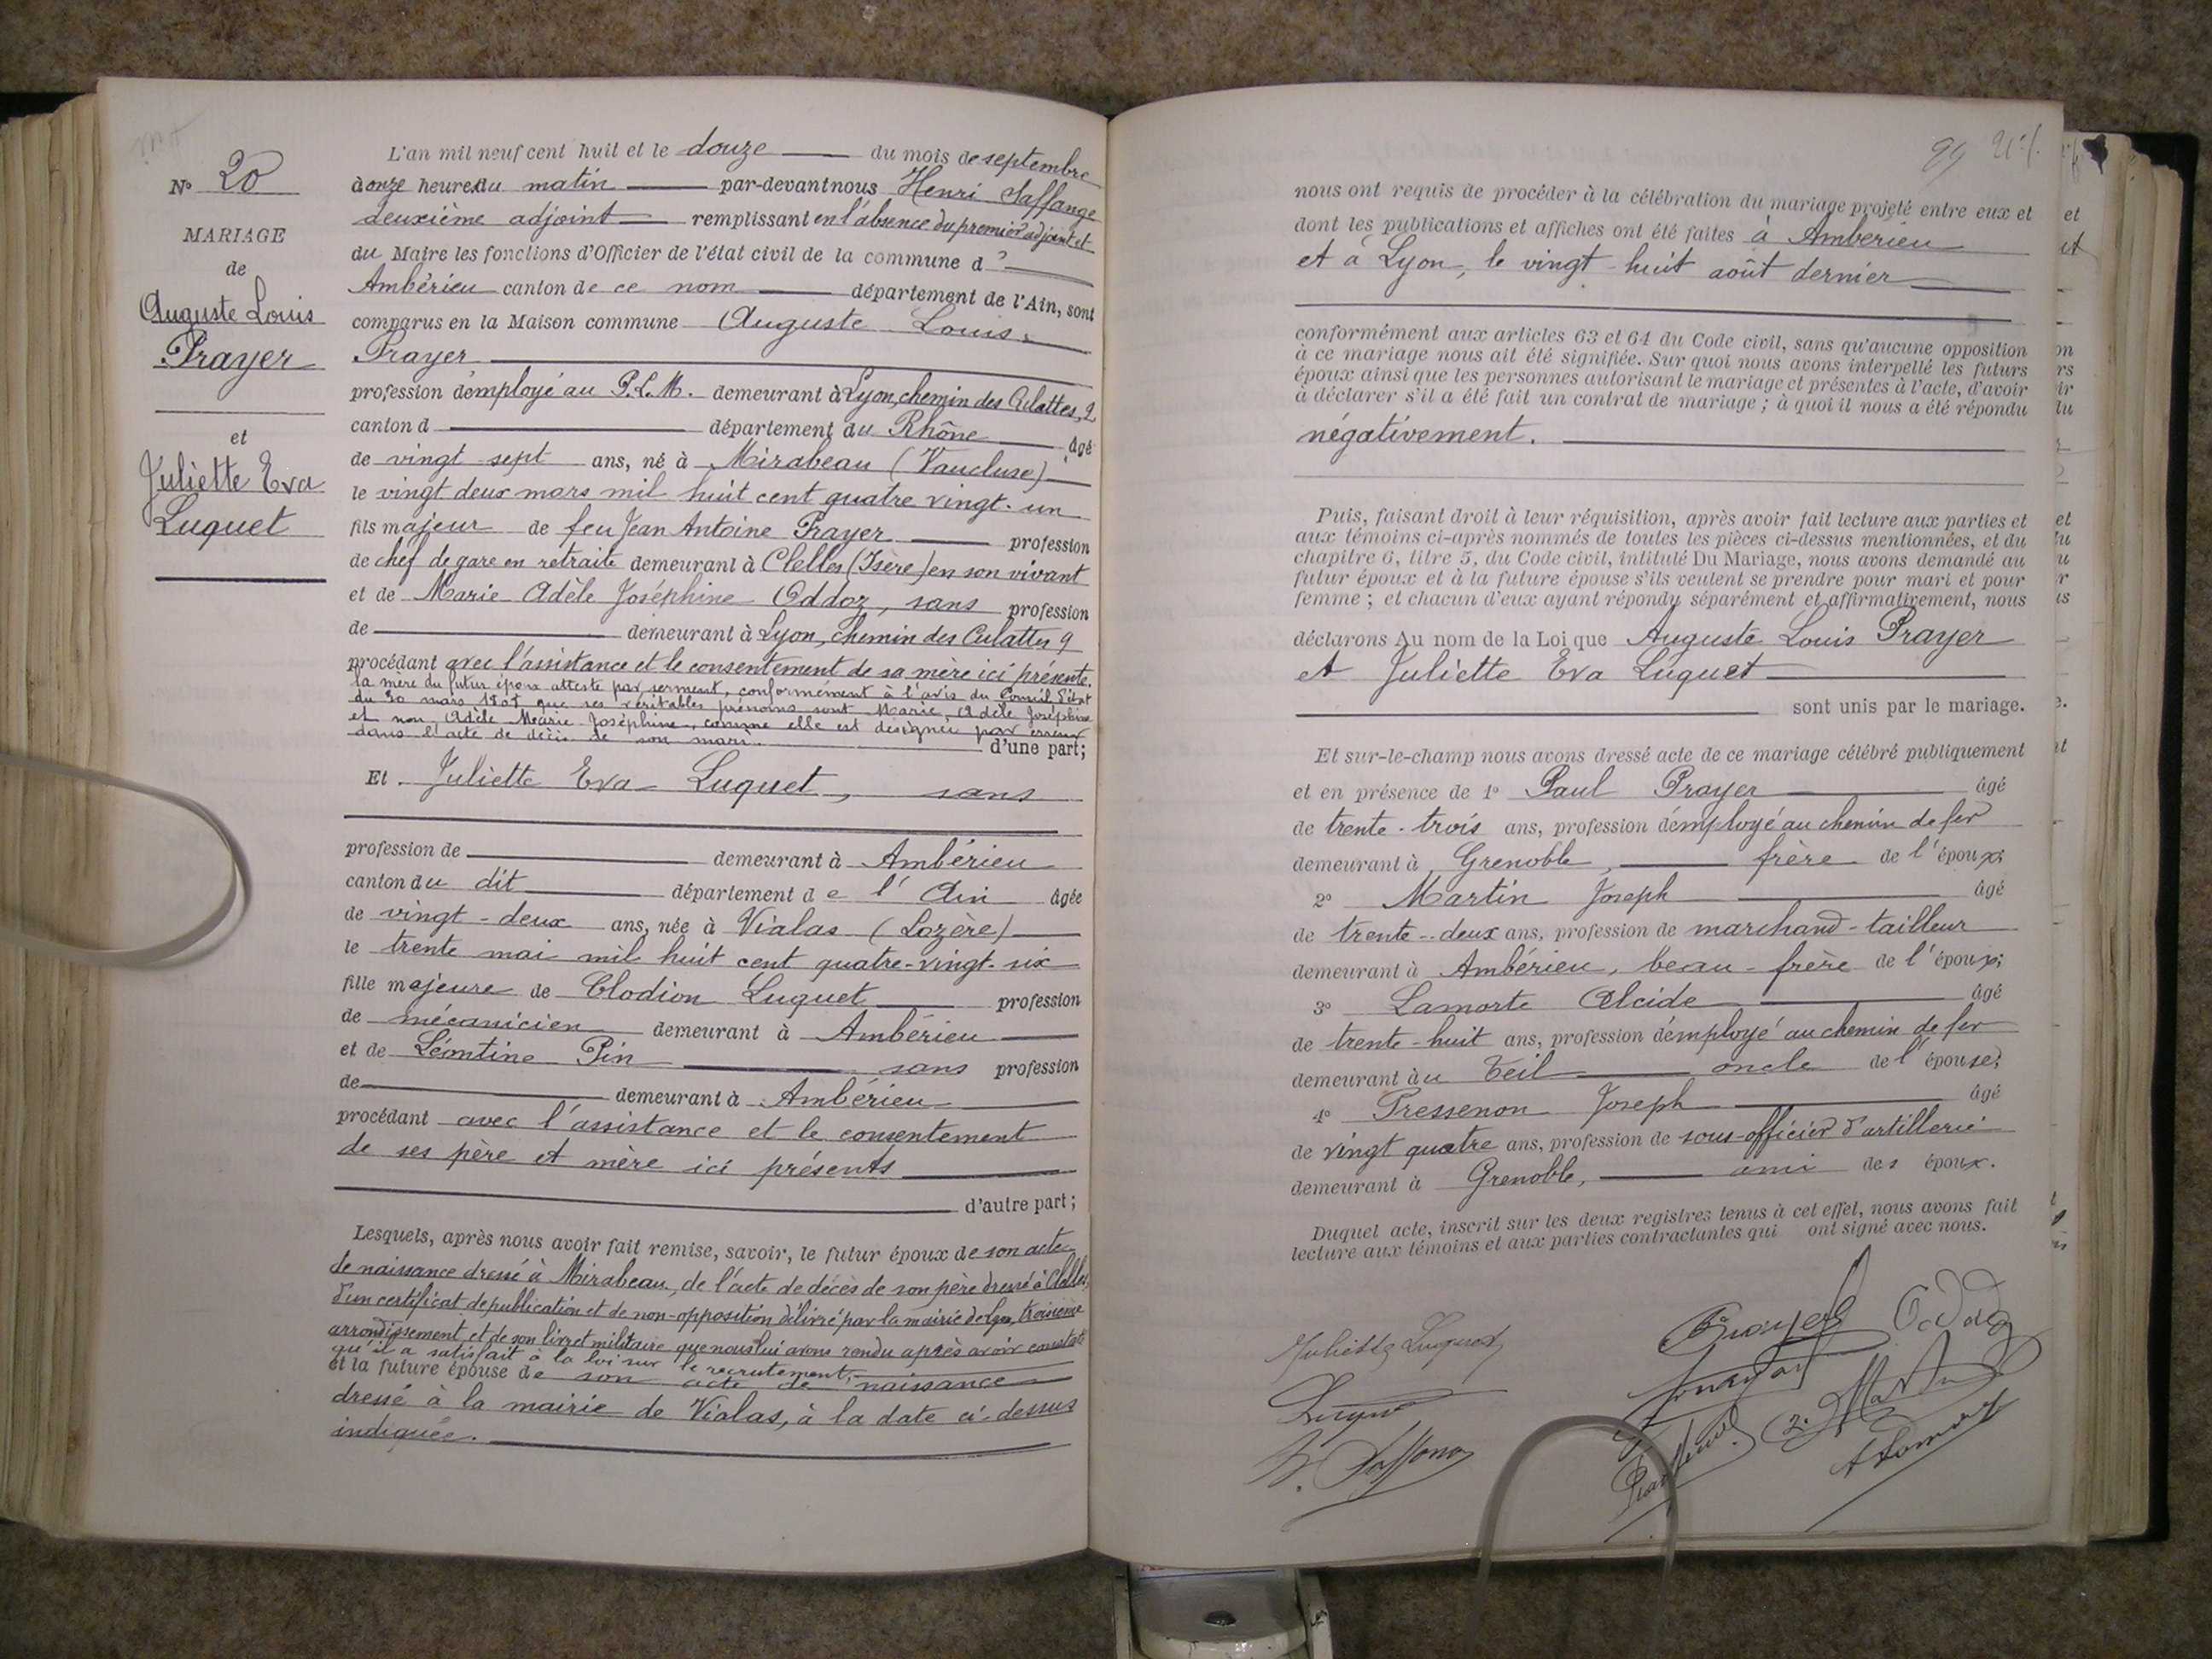 N° 20
MARIAGE
de
Auguste Louis
Prayer
et
Juliette Eva
Luquet
L'an mil neuf cent huit et le douze du mois de septembre
à onze heures du matin par-devant nous Henri Saffange
deuxième adjoint remplissant en l'absence du premier adjoint et
du Maire les fonctions d'Officier de l'état civil de la commune d'
Ambérieu canton de ce nom département de l'Ain, sont
comparus en la Maison commune Auguste Louis
Prayer
profession d'employé au P.L.M. demeurant à Lyon, chemin des Culattes, 9
canton d département du Rhône âgé
de vingt sept ans, né à Mirabeau (Vaucluse)
le vingt deux mars mil huit cent quatre vingt-un
fils majeur de feu Jean Antoine Prayer profession
de chef de gare en retraite demeurant à Clelles (Isère) en son vivant
et de Marie Adèle Joséphine Oddoz, sans profession
de demeurant à Lyon, chemin des Culattes 9
procédant avec l'assistance et le consentement de sa mère ici présente.
la mère du futur époux atteste par serment, conformément à l'avis du Conseil d'état
du 30 mars 1808 que ses véritables prénoms sont Marie, Adèle Joséphine
et non Adèle Marie Joséphine, comme elle est désignée par erreur
dans l'acte de décès de son mari. d'une part;
Et Juliette Eva Luquet, sans
profession de demeurant à Ambérieu
canton du dit département de l'Ain âgée
de vingt-deux ans, née à Vialas (Lozère)
le trente mai mil huit cent quatre-vingt-six
fille majeure de Clodion Luquet profession
de mécanicien demeurant à Ambérieu
et de Léontine Pin sans profession
de demeurant à Ambérieu
procédant avec l'assistance et le consentement
de ses père et mère ici présents
d'autre part;
Lesquels, après nous avoir fait remise, savoir, le futur époux de son acte
de naissance dressé à Mirabeau, de l'acte de décès de son père dressé à Clelles,
d'un certificat de publication et de non-opposition délivré par la mairie de Lyon, troisième
arrondissement, et de son livret militaire que nous lui avons rendu après avoir constaté
qu'il a satisfait à la loi sur le recrutement,
et la future épouse de son acte de naissance
dressé à la mairie de Vialas, à la date ci-dessus
indiquée.
nous ont requis de procéder à la célébration du mariage projeté entre eux et
dont les publications et affiches ont été faites à Ambérieu
et à Lyon, le vingt-huit août dernier
conformément aux articles 63 et 64 du Code civil, sans qu'aucune opposition
à ce mariage nous ait été signifiée. Sur quoi nous avons interpellé les futurs
époux ainsi que les personnes autorisant le mariage et présentes à l'acte, d'avoir
à déclarer s'il a été fait un contrat de mariage; à quoi il nous a été répondu
négativement.
Puis, faisant droit à leur réquisition, après avoir fait lecture aux parties et
aux témoins ci-après nommés de toutes les pièces ci-dessus mentionnées, et du
chapitre 6, titre 5, du Code civil, intitulé Du Mariage, nous avons demandé au
futur époux et à la future épouse s'ils veulent se prendre pour mari et pour
femme; et chacun d'eux ayant répondu séparément et affirmativement, nous
déclarons Au nom de la Loi que Auguste Louis Prayer
et Juliette Eva Luquet
sont unis par le mariage.
Et sur-le-champ nous avons dressé acte de ce mariage célébré publiquement
et en présence de 1° Paul Prayer âgé
de trente-trois ans, profession d'employé au chemin de fer
demeurant à Grenoble, frère de l'époux;
2° Martin Joseph âgé
de trente-deux ans, profession de marchand-tailleur
demeurant à Ambérieu, beau-frère de l'époux;
3° Lamorte Alcide âgé
de trente-huit ans, profession d'employé au chemin de fer
demeurant au Teil oncle de l'épouse;
4° Pressenon Joseph âgé
de vingt quatre ans, profession de sous-officier d'artillerie
demeurant à Grenoble, ami des époux.
Duquel acte, inscrit sur les deux registres tenus à cet effet, nous avons fait
lecture aux témoins et aux parties contractantes qui ont signé avec nous.
Juliette Luquet